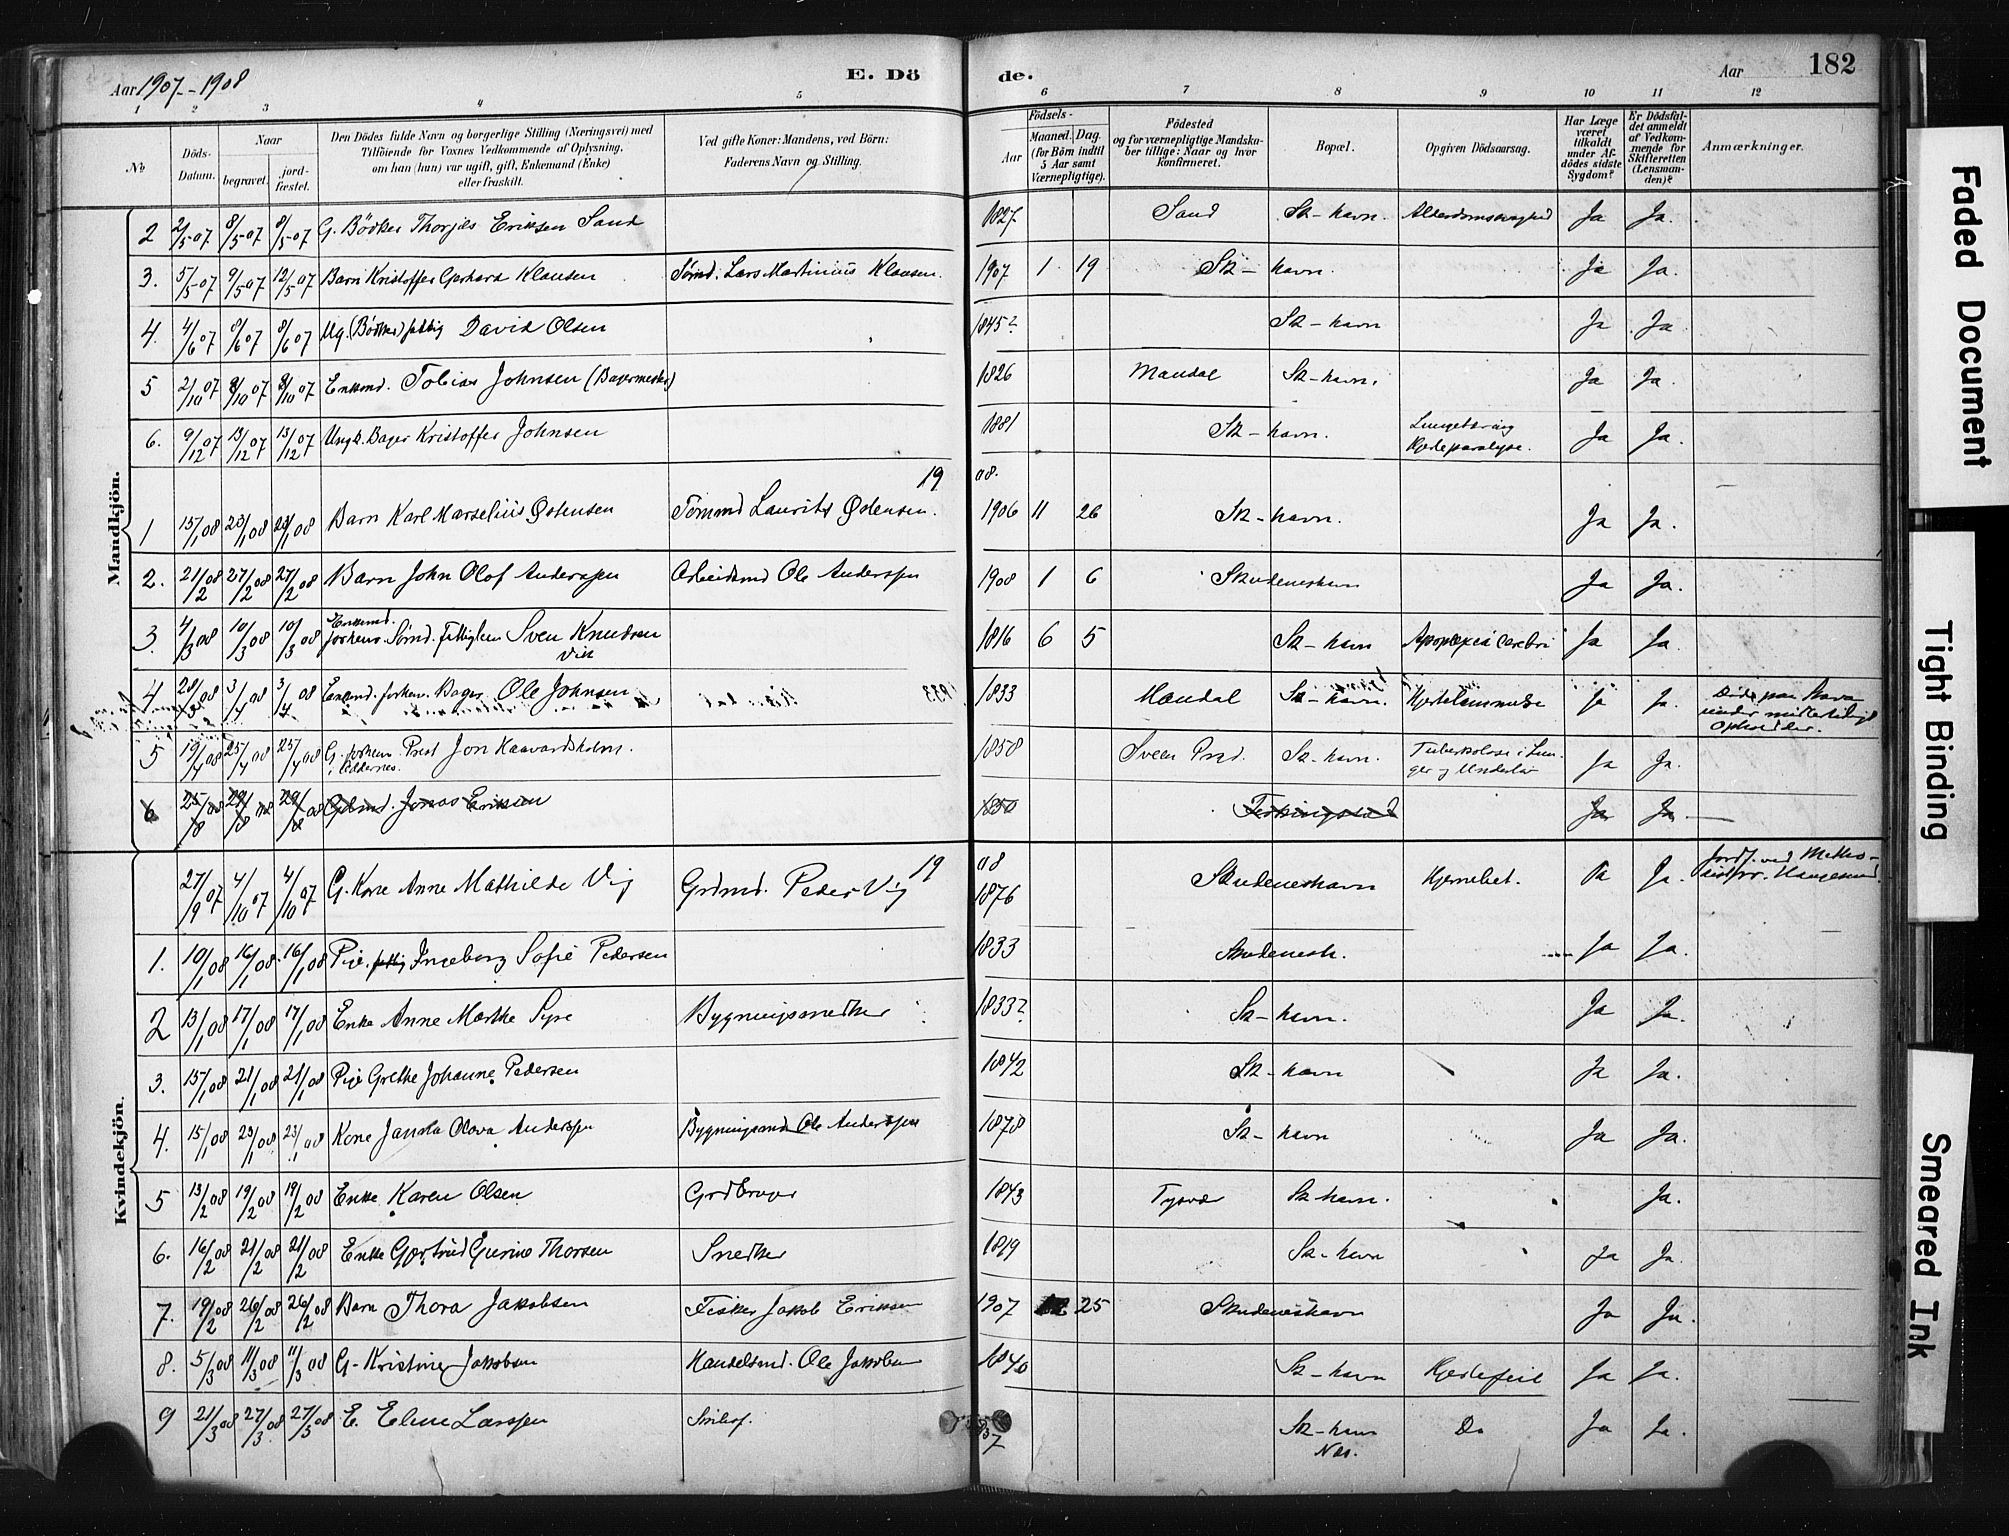 Aar 1907 - 1908
E. Dö
de.
Aar
182
1 2 3 4 5 6 7 8 9 10 11 12
No
Döds-
Datum.
Naar
begravet.
jord-
fæstet.
Den Dödes fulde Navn og borgerlige Stilling (Næringsvei) med
Tilföiende for Voxnes Vedkommende af Oplysning,
om han (hun) var ugift, gift, Enkemand (Enke)
eller fraskilt.
Ved gifte Koner: Mandens, ved Börn:
Faderens Navn og Stilling.
Födsels-
Aar
Maaned. Dag.
(for Börn indtil
5 Aar samt
Værnepligtige).
Födested
og for værnepligtige Mandska-
ber tillige: Naar og hvor
konfirmeret.
Bopæl.
Opgiven Dödsaarsag.
Har Læge
været
tilkaldt
under Af-
dödes sidste
Sygdom?
Er Dödsfal-
det anmeldt
af Vedkom-
mende for
Skifteretten
(Lensman-
den)?
Anmærkninger.
Mandkjön.
2 2/5 07 8/5 07 8/5 07 G. Bödker Thorjus Eriksen Sand 1827 Sand Sk-havn. Alderdomssvaghed Ja Ja.
3. 5/5 07 9/5 07 12/5 07 Barn Kristoffer Gerhard Klausen Sømd. Lars Martinius Klausen. 1907 1 19 Sk-havn. Ja Ja.
4. 4/6 07 8/6 07 8/6 07 Ug. (Bödker) fattig David Olsen 1845? Sk-havn Ja Ja
5 2/10 07 8/10 07 8/10 07 Enkemd. Tobias Johnsen (Bagermester) 1826 Mandal Sk-havn. Ja Ja.
6. 9/12 07 13/12 07 13/12 07 Ungk. Bager Kristoffer Johnsen 1881 Sk-havn. Lungetæring
Hjerteparalyse. Ja Ja.
19 08.
1 15/1 08 20/1 08 20/1 08 Barn Karl Marselius Østensen Tømmd Laurits Østensen. 1906 11 26 Sk-havn. Ja Ja.
2. 21/2 08 27/2 08 27/2 08 Barn John Olof Anderssen Arbeidsmd Ole Anderssen 1908 1 6 Skudeneshavn Ja Ja.
3. 4/3 08 10/3 08 10/3 08 Enkemd.
forhenv. Sømd. Fattiglem Sven Knudsen
Vik 1816 6 5 Sk-havn Apoplexia cerebri Ja Ja.
4 28/3 08 3/4 08 3/4 08 Enkemd. forhenv. Bager Ole Johnsen 1833 Mandal Sk-havn. Hjertelammelse Ja Ja.
under midlertidigt
Ophold der.
5 19/4 08 25/4 08 25/4 08 G. forhenv. Prest Jon Haavardsholm.
i Oddernes. 1858 Sveen Pred. Sk-havn. Tuberkulose i Lun-
ger og Underliv Ja Ja.
6 25/8 08 29/8 08 29/8 08 Gbmd. Jonas Eriksen 1850 Ferkingstad Ja Ja
Kvindekjön.
19 08
27/9 07 4/10 07 4/10 07 G. Kone Anne Mathilde Vig Grdmd. Peder Vig 1876 Skudeneshavn Hjernebet. Ja Ja. Jordf. ved Metho-
distpr. Haugesund.
1. 10/1 08 16/1 08 16/1 08 Pige fattig Ingeborg Sofie Pedersen 1833 Skudenesh. Ja Ja.
2 13/1 08 17/1 08 17/1 08 Enke Anne Marthe Syre Bygningssnedker 1833? Sk-havn. Ja Ja.
3. 15/1 08 21/1 08 21/1 08 Pige Grethe Johanne Pedersen 1842 Sk-havn Ja Ja.
4. 15/1 08 23/1 08 23/1 08 Kone Janna Olova Anderssen Bygningsmd Ole Anderssen 1878 Sk-havn Ja Ja.
5 13/2 08 19/2 08 19/2 08 Enke Karen Olsen Grdbruger 1843 Tysvær Sk-havn. Ja.
6. 16/2 08 21/2 08 21/2 08 Enke Gjertrud Gurine Thorsen Snedker 1819 Sk-havn Ja Ja.
7. 19/2 08 26/2 08 26/2 08 Barn Thora Jakobsen Fisker Jakob Eriksen 1907 12 25 Skudeneshavn Ja Ja.
8. 5/3 08 11/3 08 11/3 08 G. Kristine Jakobsen Handelsmd. Ole Jakobsen 1840 Sk-havn Hjertefeil Ja Ja.
9 21/3 08 27/3 08 27/3 08 E. Eline Larssen 37 Sk-havn
Nes. Do Ja Ja.
Faded Document
Tight Binding
Smeared Ink